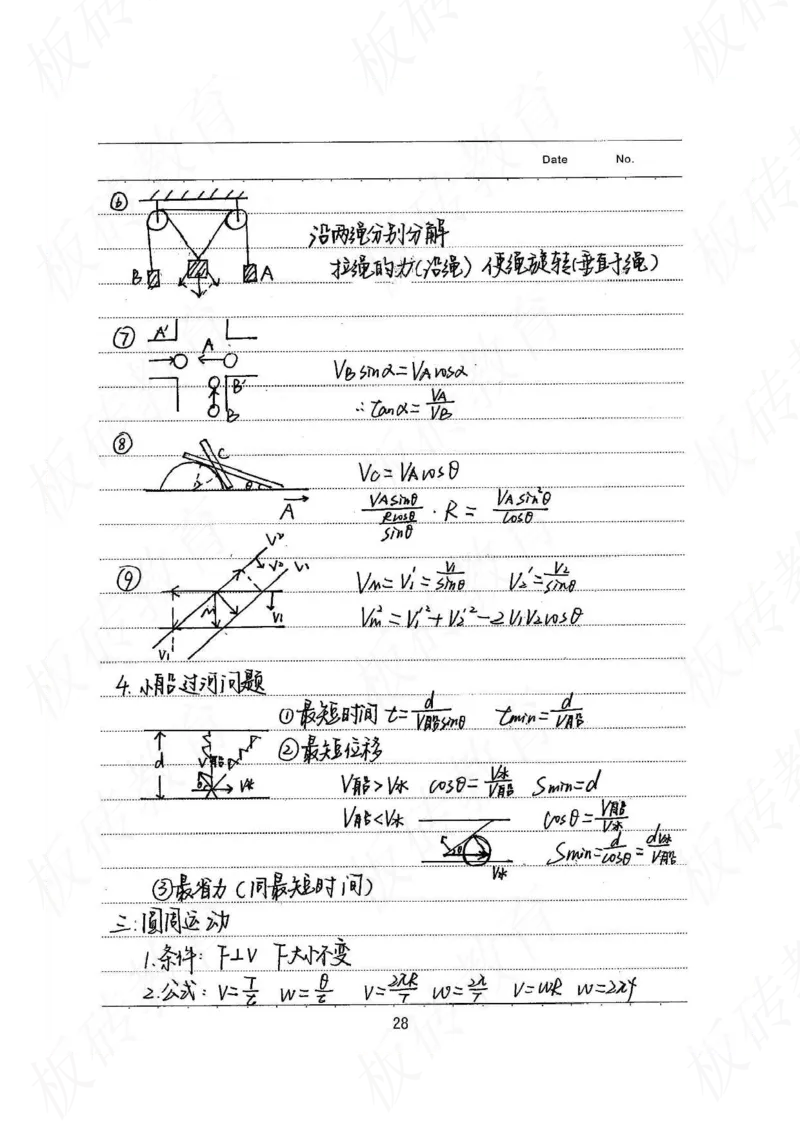 Date No.
⑥
沿两绳分别分解
拉绳的力(沿绳) 使绳旋转(垂直于绳)
B A
⑦ A' A
B'
B
V_B sinα = V_A cosα
∴ tanα = V_A/V_B
⑧ C
θ
A
V_C = V_A cosθ
(V_A sinθ)/(R cosθ/sinθ) · R = V_A sin²θ/cosθ
⑨
M V₂ V₁ V₁
V₁'
V_M = V₁' = V₁/sinθ V₂' = V₂/sinθ
V_M² = V₁'² + V₂'² - 2V₁V₂cosθ
4. 小船过河问题
①最短时间 t = d/(V船sinθ) tmin = d/V船
②最短位移
d V船 θ V水
V船 > V水 cosθ = V水/V船 Smin = d
V船 < V水 cosθ = V船/V水
θ V水
Smin = d/cosθ = dV水/V船
③最省力(同最短时间)
三:圆周运动
1.条件: F⊥V F大小不变
2.公式: V = l/t W = θ/t V = 2πR/T W = 2π/T V = WR W = 2πf
28
板砖教育